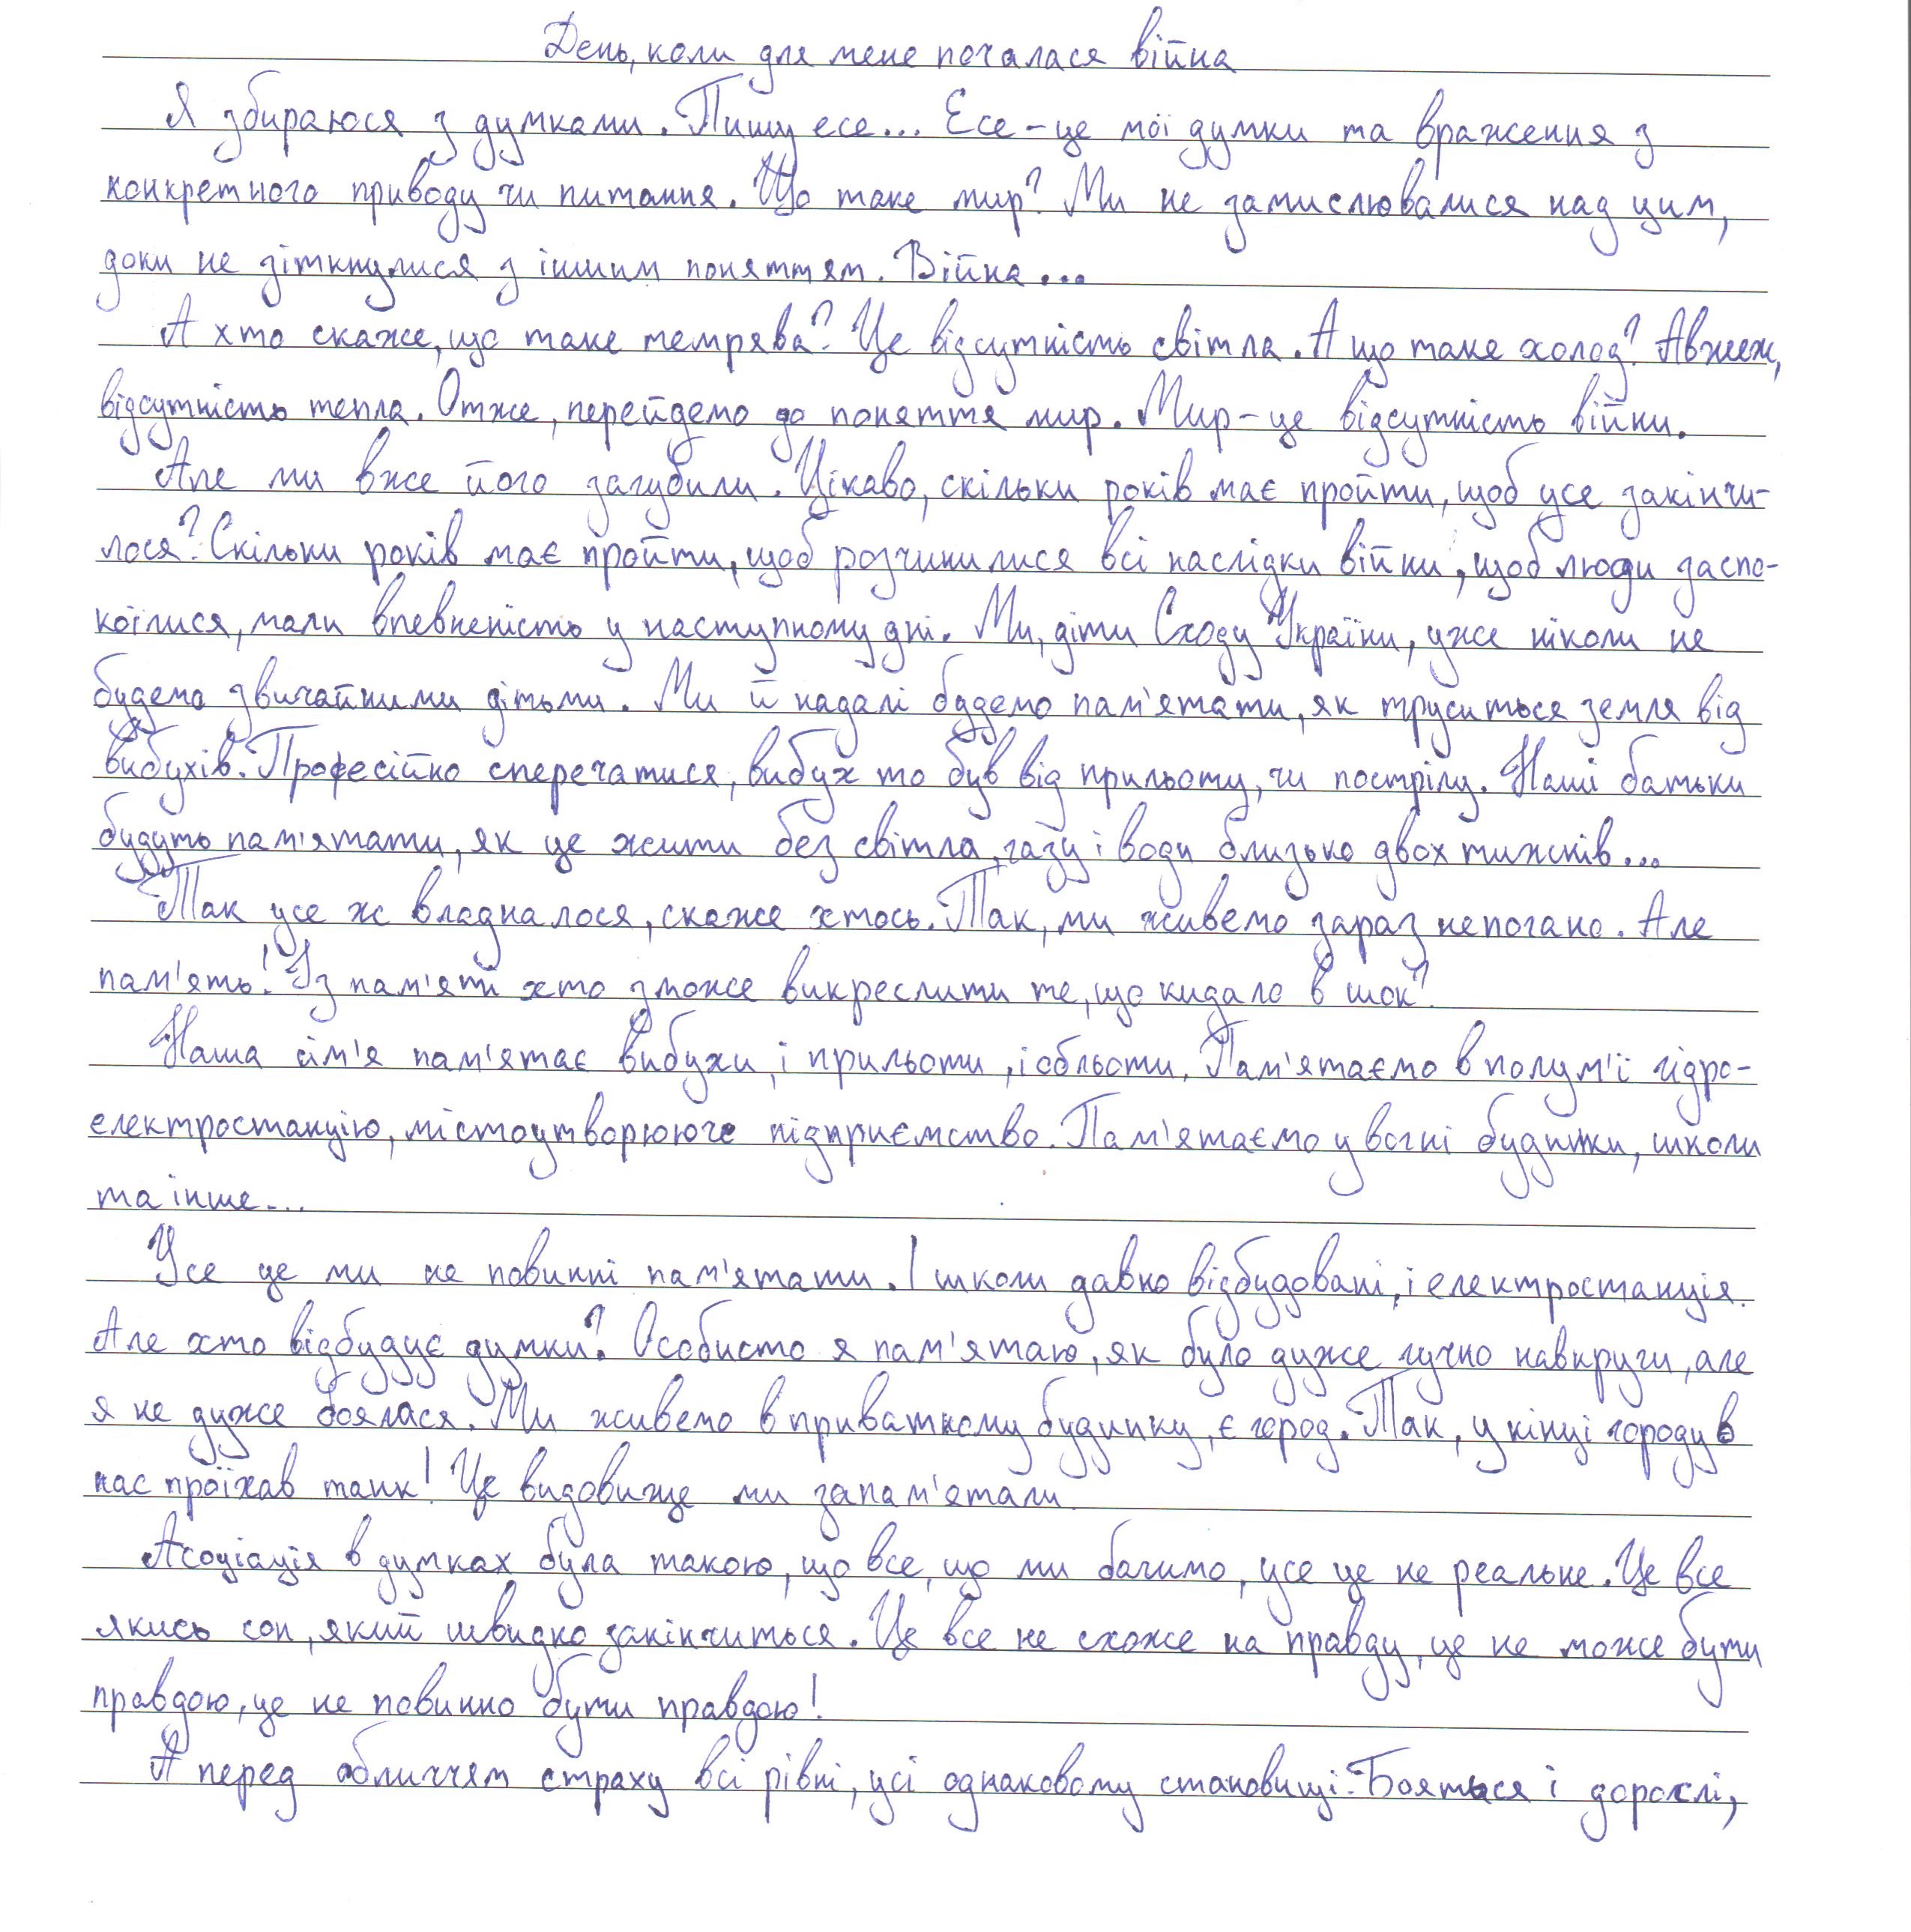 День, коли для мене почалася війна
Я збираюся з думками. Пишу есе... Есе – це мої думки та враження з
конкретного приводу чи питання. Що таке мир? Ми не замислювалися над цим,
доки не зіткнулися з іншим поняттям. Війна...
А хто скаже, що таке темрява? Це відсутність світла. А що таке холод? Авжеж,
відсутність тепла. Отже, перейдемо до поняття мир. Мир – це відсутність війни.
Але ми вже його загубили. Цікаво, скільки років має пройти, щоб усе закінчи-
лося? Скільки років має пройти, щоб розчинилися всі наслідки війни, щоб люди заспо-
коїлися, мали впевненість у наступному дні. Ми, діти Сходу України, уже ніколи не
будемо звичайними дітьми. Ми й надалі будемо пам'ятати, як труситься земля від
вибухів. Професійно сперечатися, вибух то був від прильоту, чи пострілу. Наші батьки
будуть пам'ятати, як це жити без світла, газу і води близько двох тижнів...
Так усе ж владналося, скаже хтось. Так, ми живемо зараз непогано. Але
пам'ять! Із пам'яті хто зможе викреслити те, що кидало в шок?
Наша сім'я пам'ятає вибухи, і прильоти, і обльоти. Пам'ятаємо в полум'ї гідро-
електростанцію, містоутворююче підприємство. Пам'ятаємо у вогні будинки, школи
та інше...
Усе це ми не повинні пам'ятати. І школи давно відбудовані, і електростанція.
Але хто відбудує думки? Особисто я пам'ятаю, як було дуже гучно навкруги, але
я не дуже боялася. Ми живемо в приватному будинку, є город. Так, у кінці городу в
нас проїхав танк! Це видовище ми запам'ятали.
Асоціація в думках була такою, що все, що ми бачимо, усе це не реальне. Це все
якись сон, який швидко закінчиться. Це все не схоже на правду, це не може бути
правдою, це не повинно бути правдою!
А перед обличчям страху всі рівні, усі однаковому становищі. Бояться і дорослі,